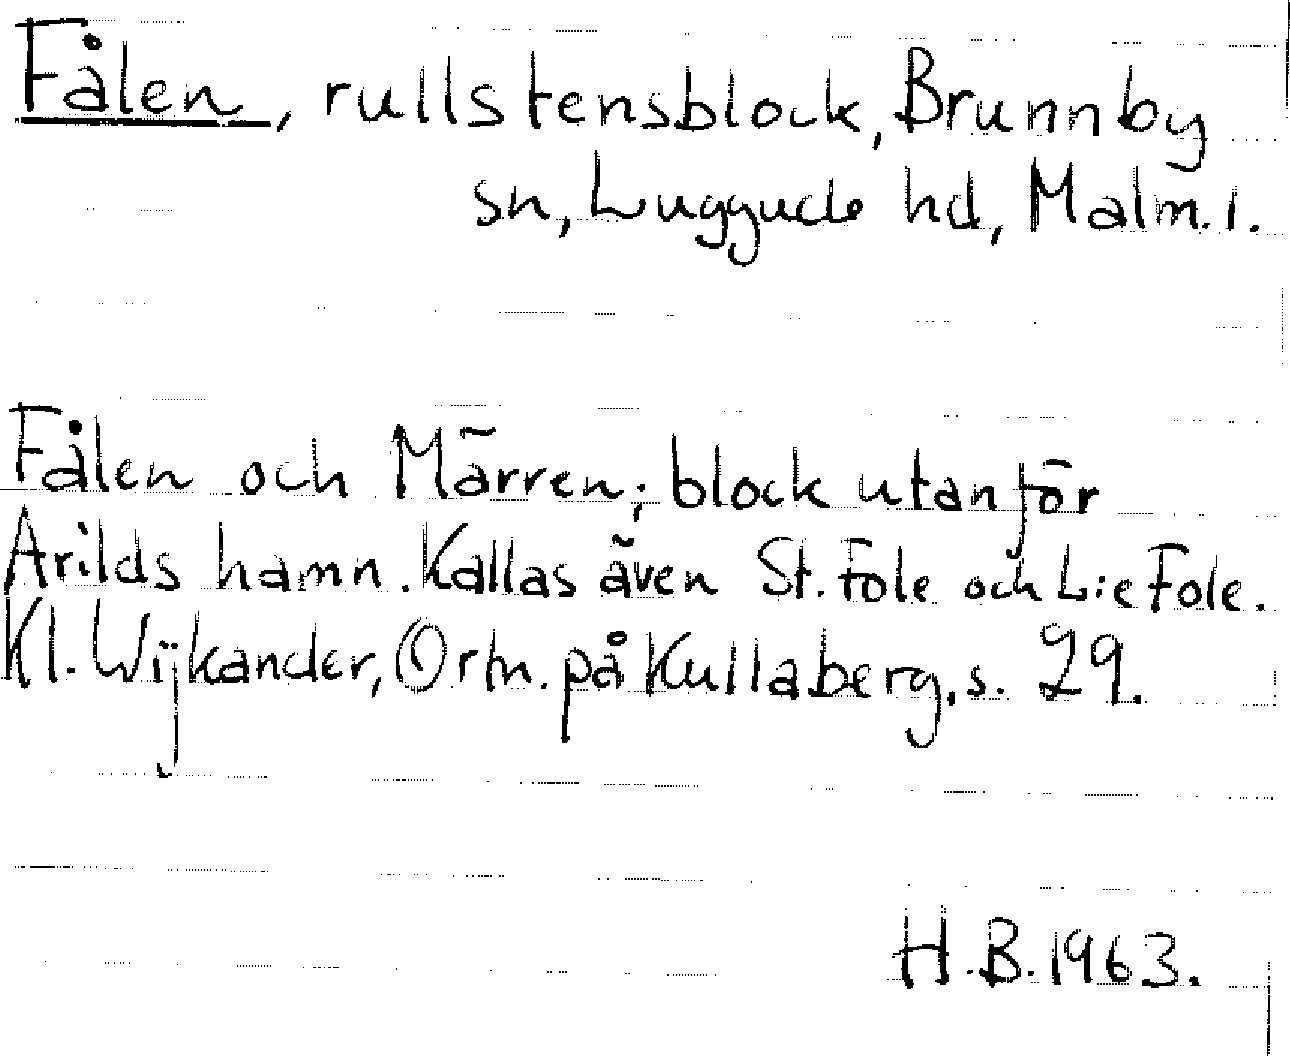 Fålen, rullstensblock, Brunnby
sn, Luggude hd, Malm. l.
Fålen och Märren; block utanför
Arilds hamn. Kallas även St. Fole och L:e Fole.
Kl. Wijkander, Ortn. på Kullaberg, s. 29.
H.B. 1963.